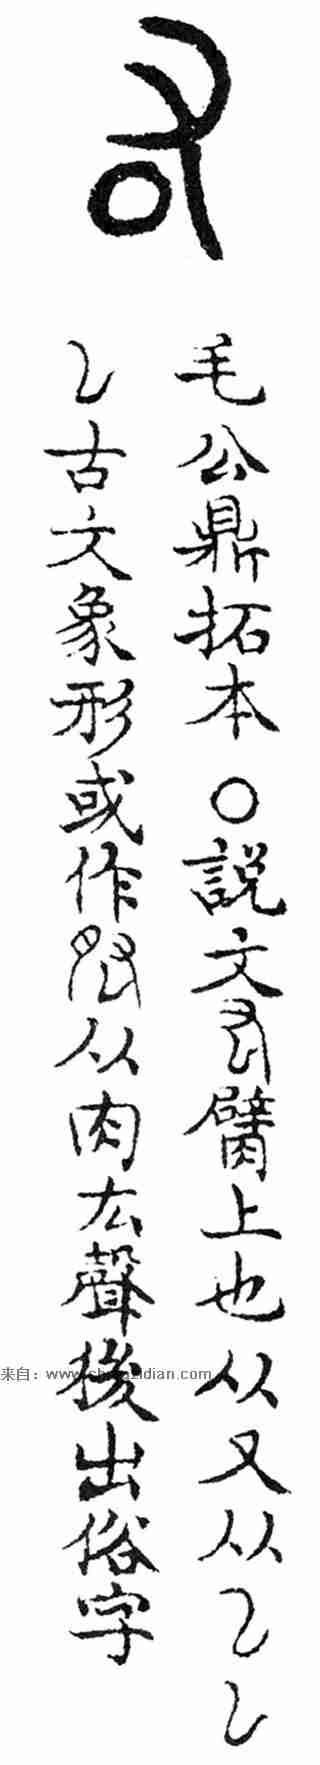 毛公鼎拓本○說文厷臂上也从又从𠃋𠃋
𠃋古文象形或作肱从肉厷聲後出俗字
来自：www.shufazidian.com